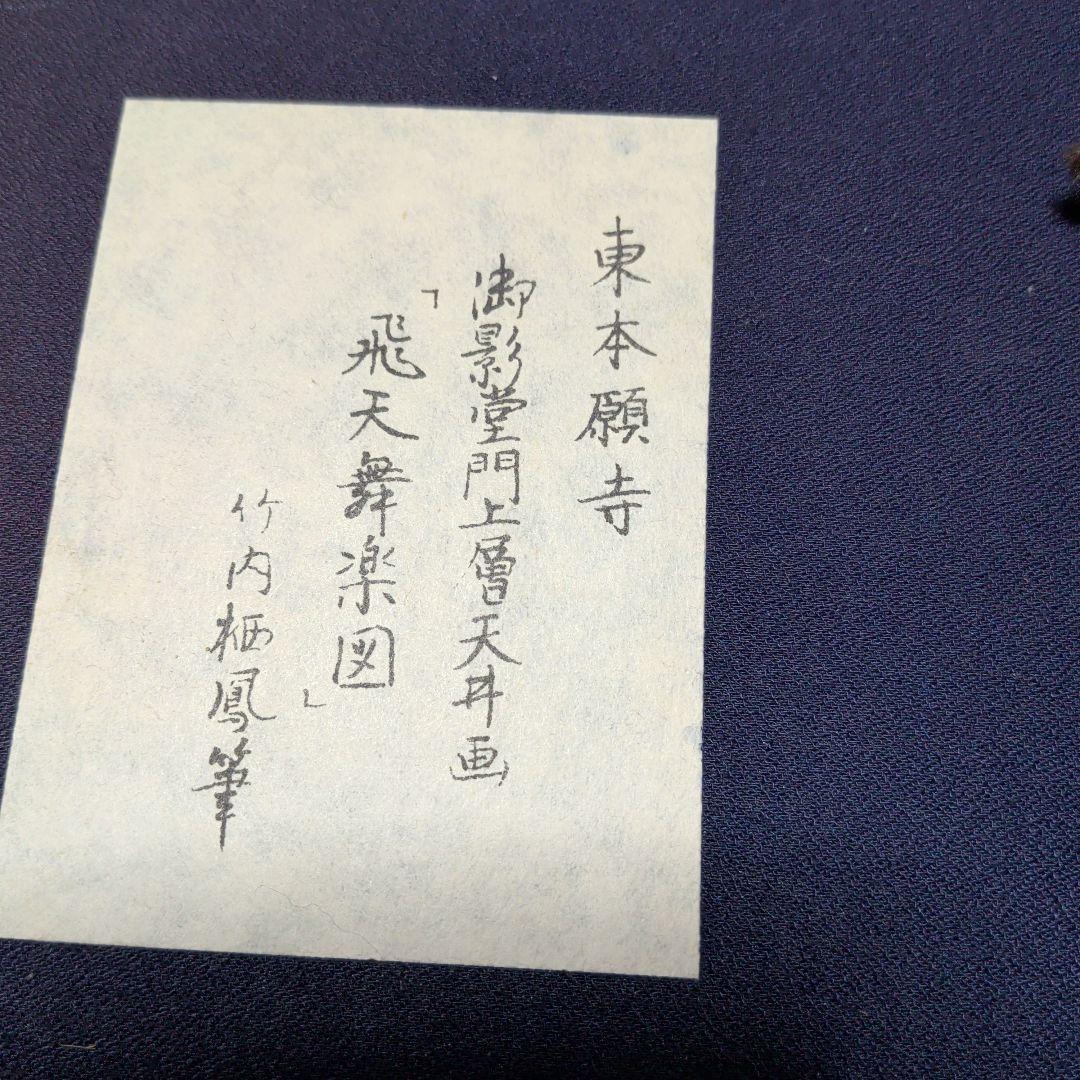 東本願寺
御影堂門上層天井画
「飛天舞楽図」
竹内栖鳳筆